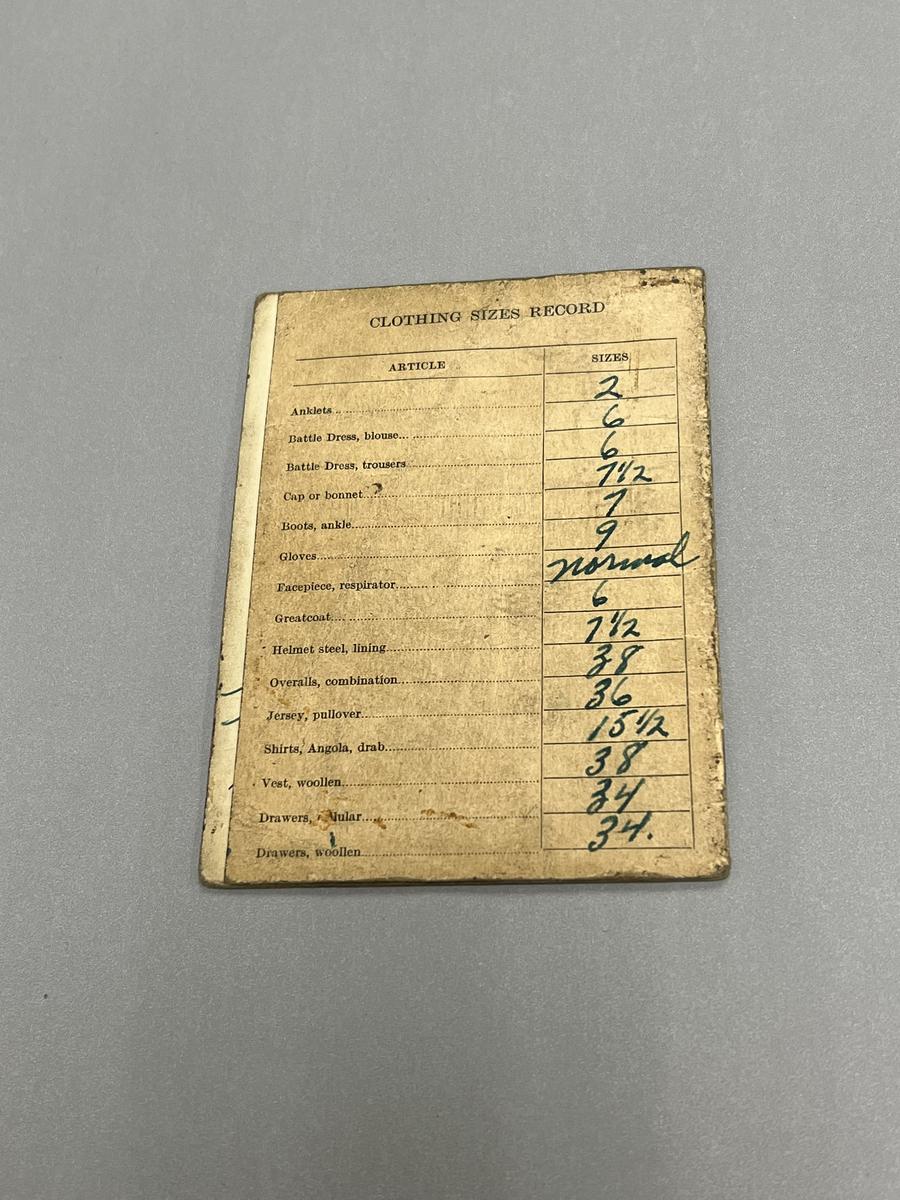 CLOTHING SIZES RECORD
ARTICLE SIZES
Anklets 2
Battle Dress, blouse 6
Battle Dress, trousers 6
Cap or bonnet 7 1/2
Boots, ankle 7
Gloves 9
Facepiece, respirator normal
Greatcoat 6
Helmet steel, lining 7 1/2
Overalls, combination 38
Jersey, pullover 36
Shirts, Angola, drab 15 1/2
Vest, woollen 38
Drawers, 34
Drawers, woollen 34.